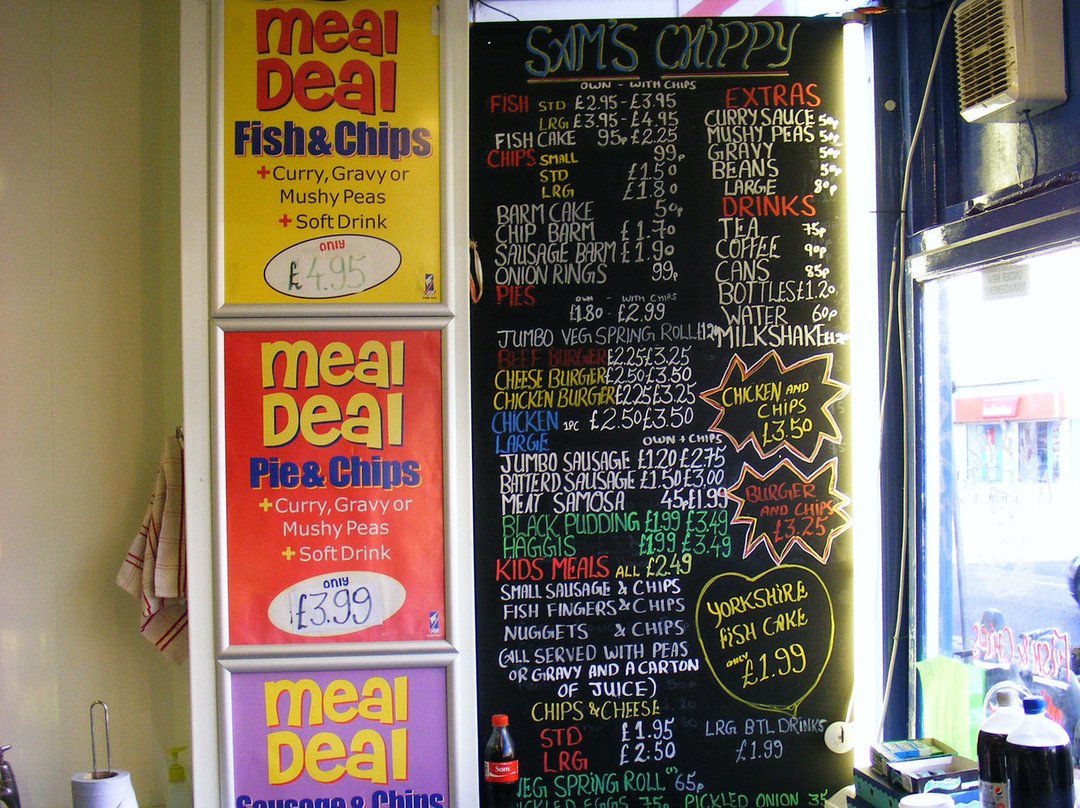 meal
Deal
Fish & Chips
+ Curry, Gravy or
Mushy Peas
+ Soft Drink
only
£4.95
meal
Deal
Pie & Chips
+ Curry, Gravy or
Mushy Peas
+ Soft Drink
only
£3.99
meal
Deal
Sausage & Chips
SAM'S CHIPPY
OWN - WITH CHIPS
FISH STD £2.95 - £3.95
LRG £3.95 - £4.95
FISH CAKE 95p £2.25
CHIPS SMALL 99p
STD £1.50
LRG £1.80
BARM CAKE 50p
CHIP BARM £1.70
SAUSAGE BARM £1.90
ONION RINGS 99p
PIES
OWN - WITH CHIPS
£1.80 - £2.99
JUMBO VEG SPRING ROLL £1.20
BEEF BURGER £2.25 £3.25
CHEESE BURGER £2.50 £3.50
CHICKEN BURGER £2.25 £3.25
CHICKEN 1PC £2.50 £3.50
LARGE
OWN + CHIPS
JUMBO SAUSAGE £1.20 £2.75
BATTERD SAUSAGE £1.50 £3.00
MEAT SAMOSA 45p £1.99
BLACK PUDDING £1.99 £3.49
HAGGIS £1.99 £3.49
KIDS MEALS ALL £2.49
SMALL SAUSAGE & CHIPS
FISH FINGERS & CHIPS
NUGGETS & CHIPS
(ALL SERVED WITH PEAS
OR GRAVY AND A CARTON
OF JUICE)
CHIPS & CHEESE
STD £1.95
LRG £2.50
VEG SPRING ROLL 65p
PICKLED EGGS 75p PICKLED ONION 35
EXTRAS
CURRY SAUCE 50p
MUSHY PEAS 50p
GRAVY 50p
BEANS 50p
LARGE 80p
DRINKS
TEA 75p
COFFEE 90p
CANS 85p
BOTTLES £1.20
WATER 60p
MILKSHAKE
CHICKEN AND
CHIPS
£3.50
BURGER
AND CHIPS
£3.25
YORKSHIRE
FISH CAKE
only
£1.99
LRG BTL DRINKS
£1.99
Sam
FISH & CHIPS